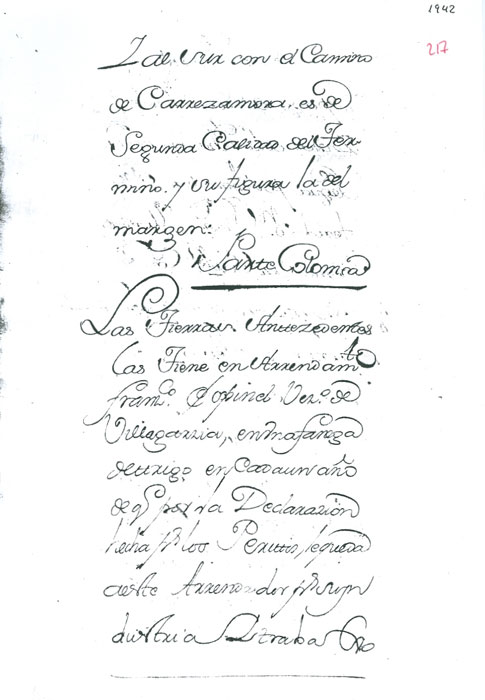 1942
217
Z al Sur con el Camino
de Carrezamora, es de
Segunda Calidad del Ter-
mino. y su figura la del
margen:
Parte Colonica
Las Tierras Antezedentes
las Tiene en Arrendamto
Franco. Espinel Vezo. de
Villagarzia, en una fanega
de trigo en Cada un año
de qe por la Declarazion
hecha pr. los Peritos, le queda
a este Arrendador pr. su yn
dustria y trabaxo